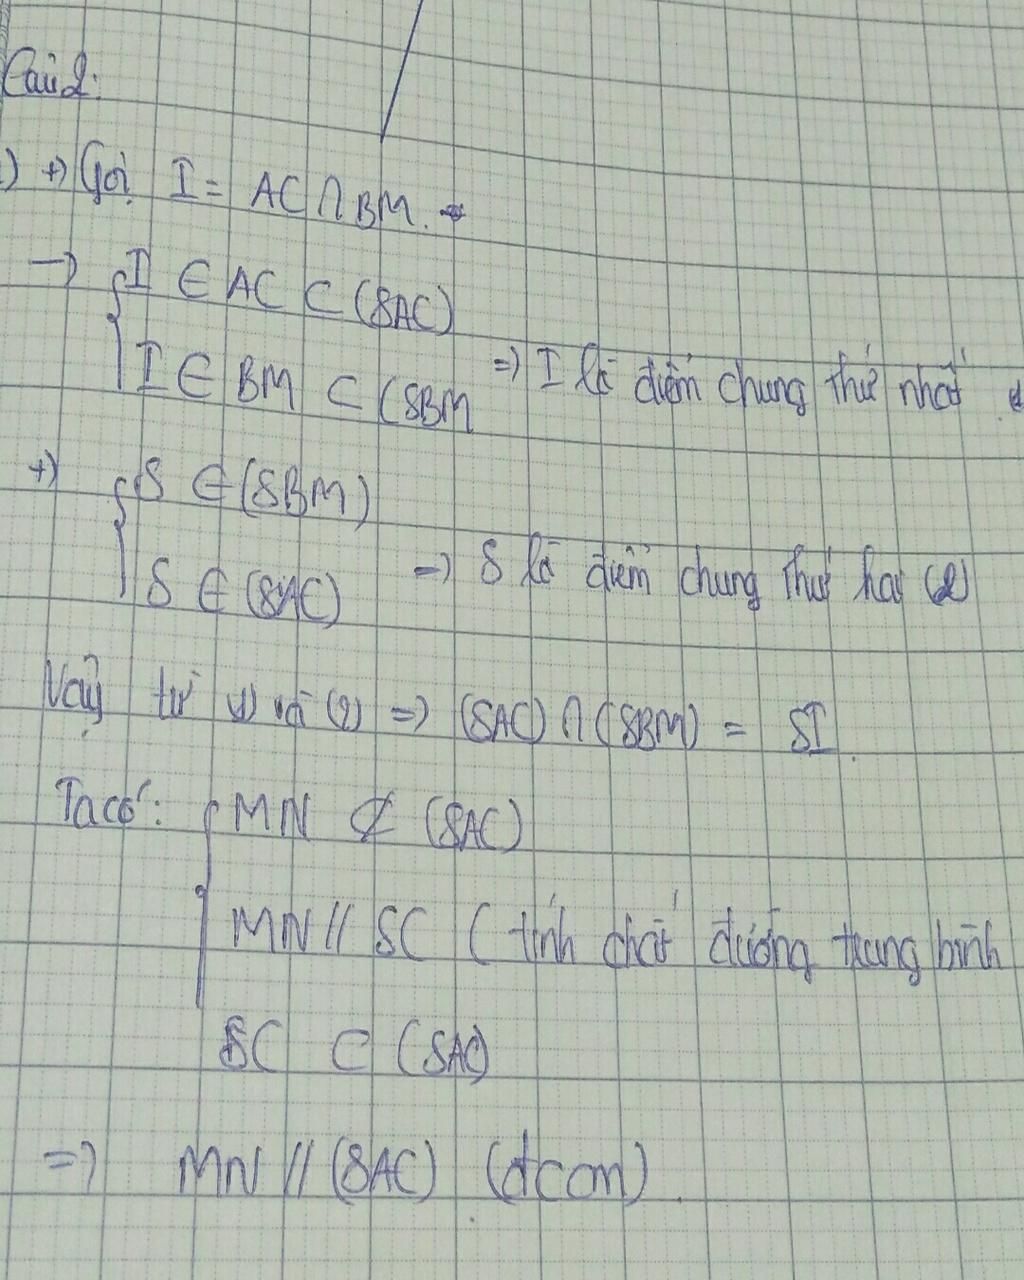 Câu 2:
) +) Gọi I = AC ∩ BM.
→ { I ∈ AC ⊂ (SAC)
I ∈ BM ⊂ (SBM => I là điểm chung thứ nhất
+) { S ∈ (SBM)
S ∈ (SAC) => S là điểm chung thứ hai (2)
Vậy từ (1) và (2) => (SAC) ∩ (SBM) = SI.
Ta có: { MN ⊄ (SAC)
MN // SC ( tính chất đường trung bình
SC ⊂ (SAC)
=> MN // (SAC) (đccm).